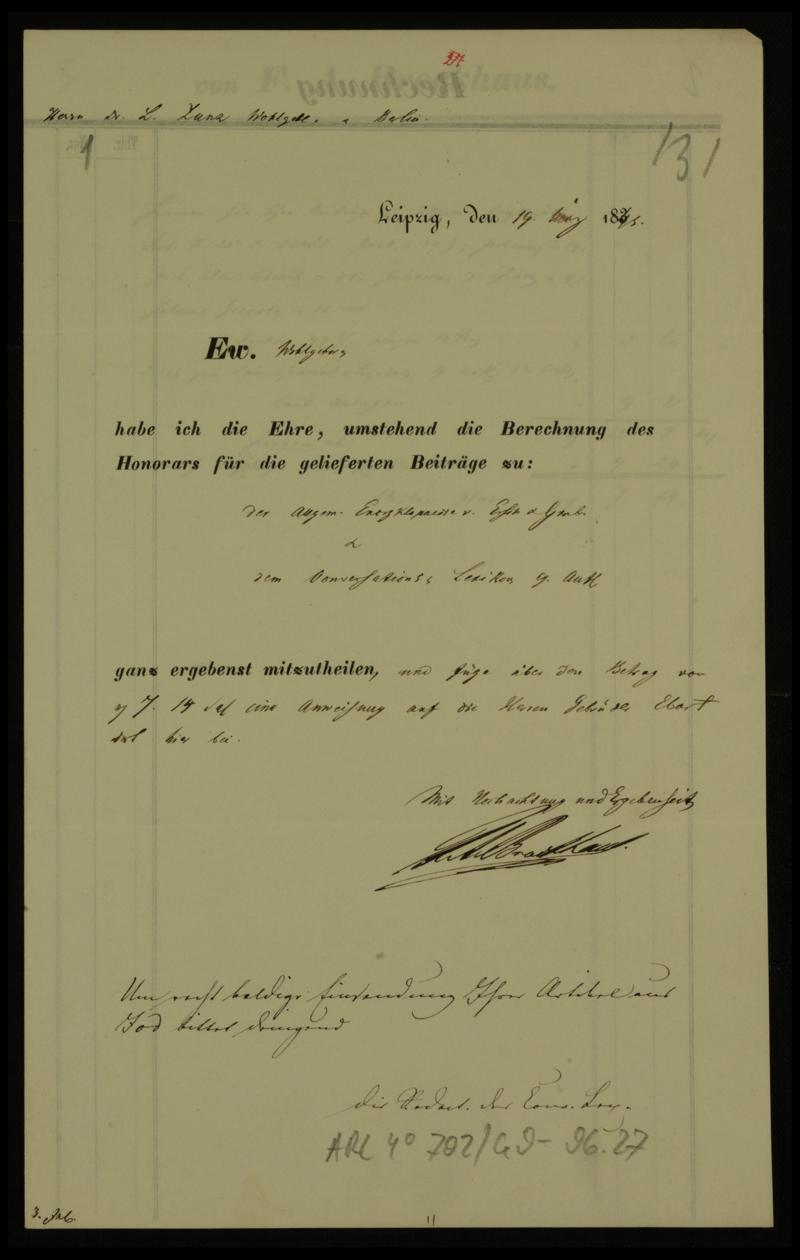 27
Herrn Dr. L. Zunz Wohlgeb. a Berlin.
1
131
Leipzig, den 19. März 1845.
Ew. Wohlgeboren
habe ich die Ehre, umstehend die Berechnung des
Honorars für die gelieferten Beiträge zu:
der Allgem. Encyklopaedie v. Ersch & Grub.
&
dem Conversations-Lexikon 9. Aufl
ganz ergebenst mitzutheilen, und füge über den Betrag von
7. 14 eine Anweisung auf die Herren Gebrüder Ebart
hier bei.
Mit Hochachtung und Ergebenheit
Brockhaus.
Um recht baldige Einsendung Ihrer Artikel aus
Jod bittet dringend
Die Redact. der Conv. Lex.
ARC 4° 792/G9-96.27
3.